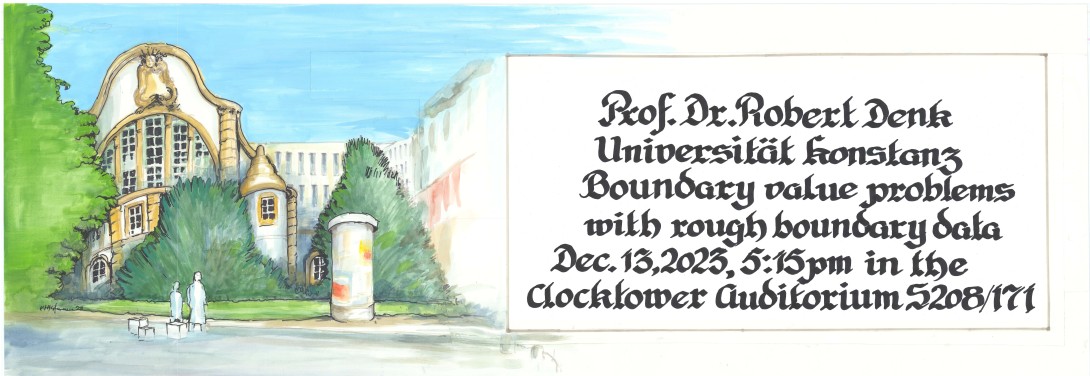 Prof. Dr. Robert Denk
Universität Konstanz
Boundary value problems
with rough boundary data
Dec. 13, 2023, 5:15pm in the
Clocktower Auditorium S208/171